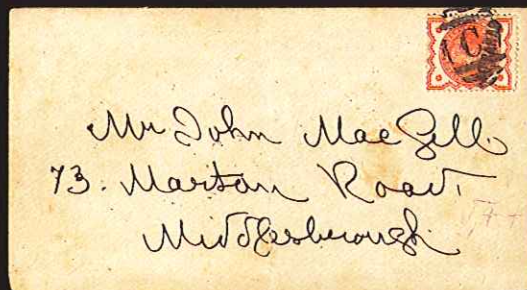 1C
Mr John MacGill
73. Marton Road.
Middlesbrough